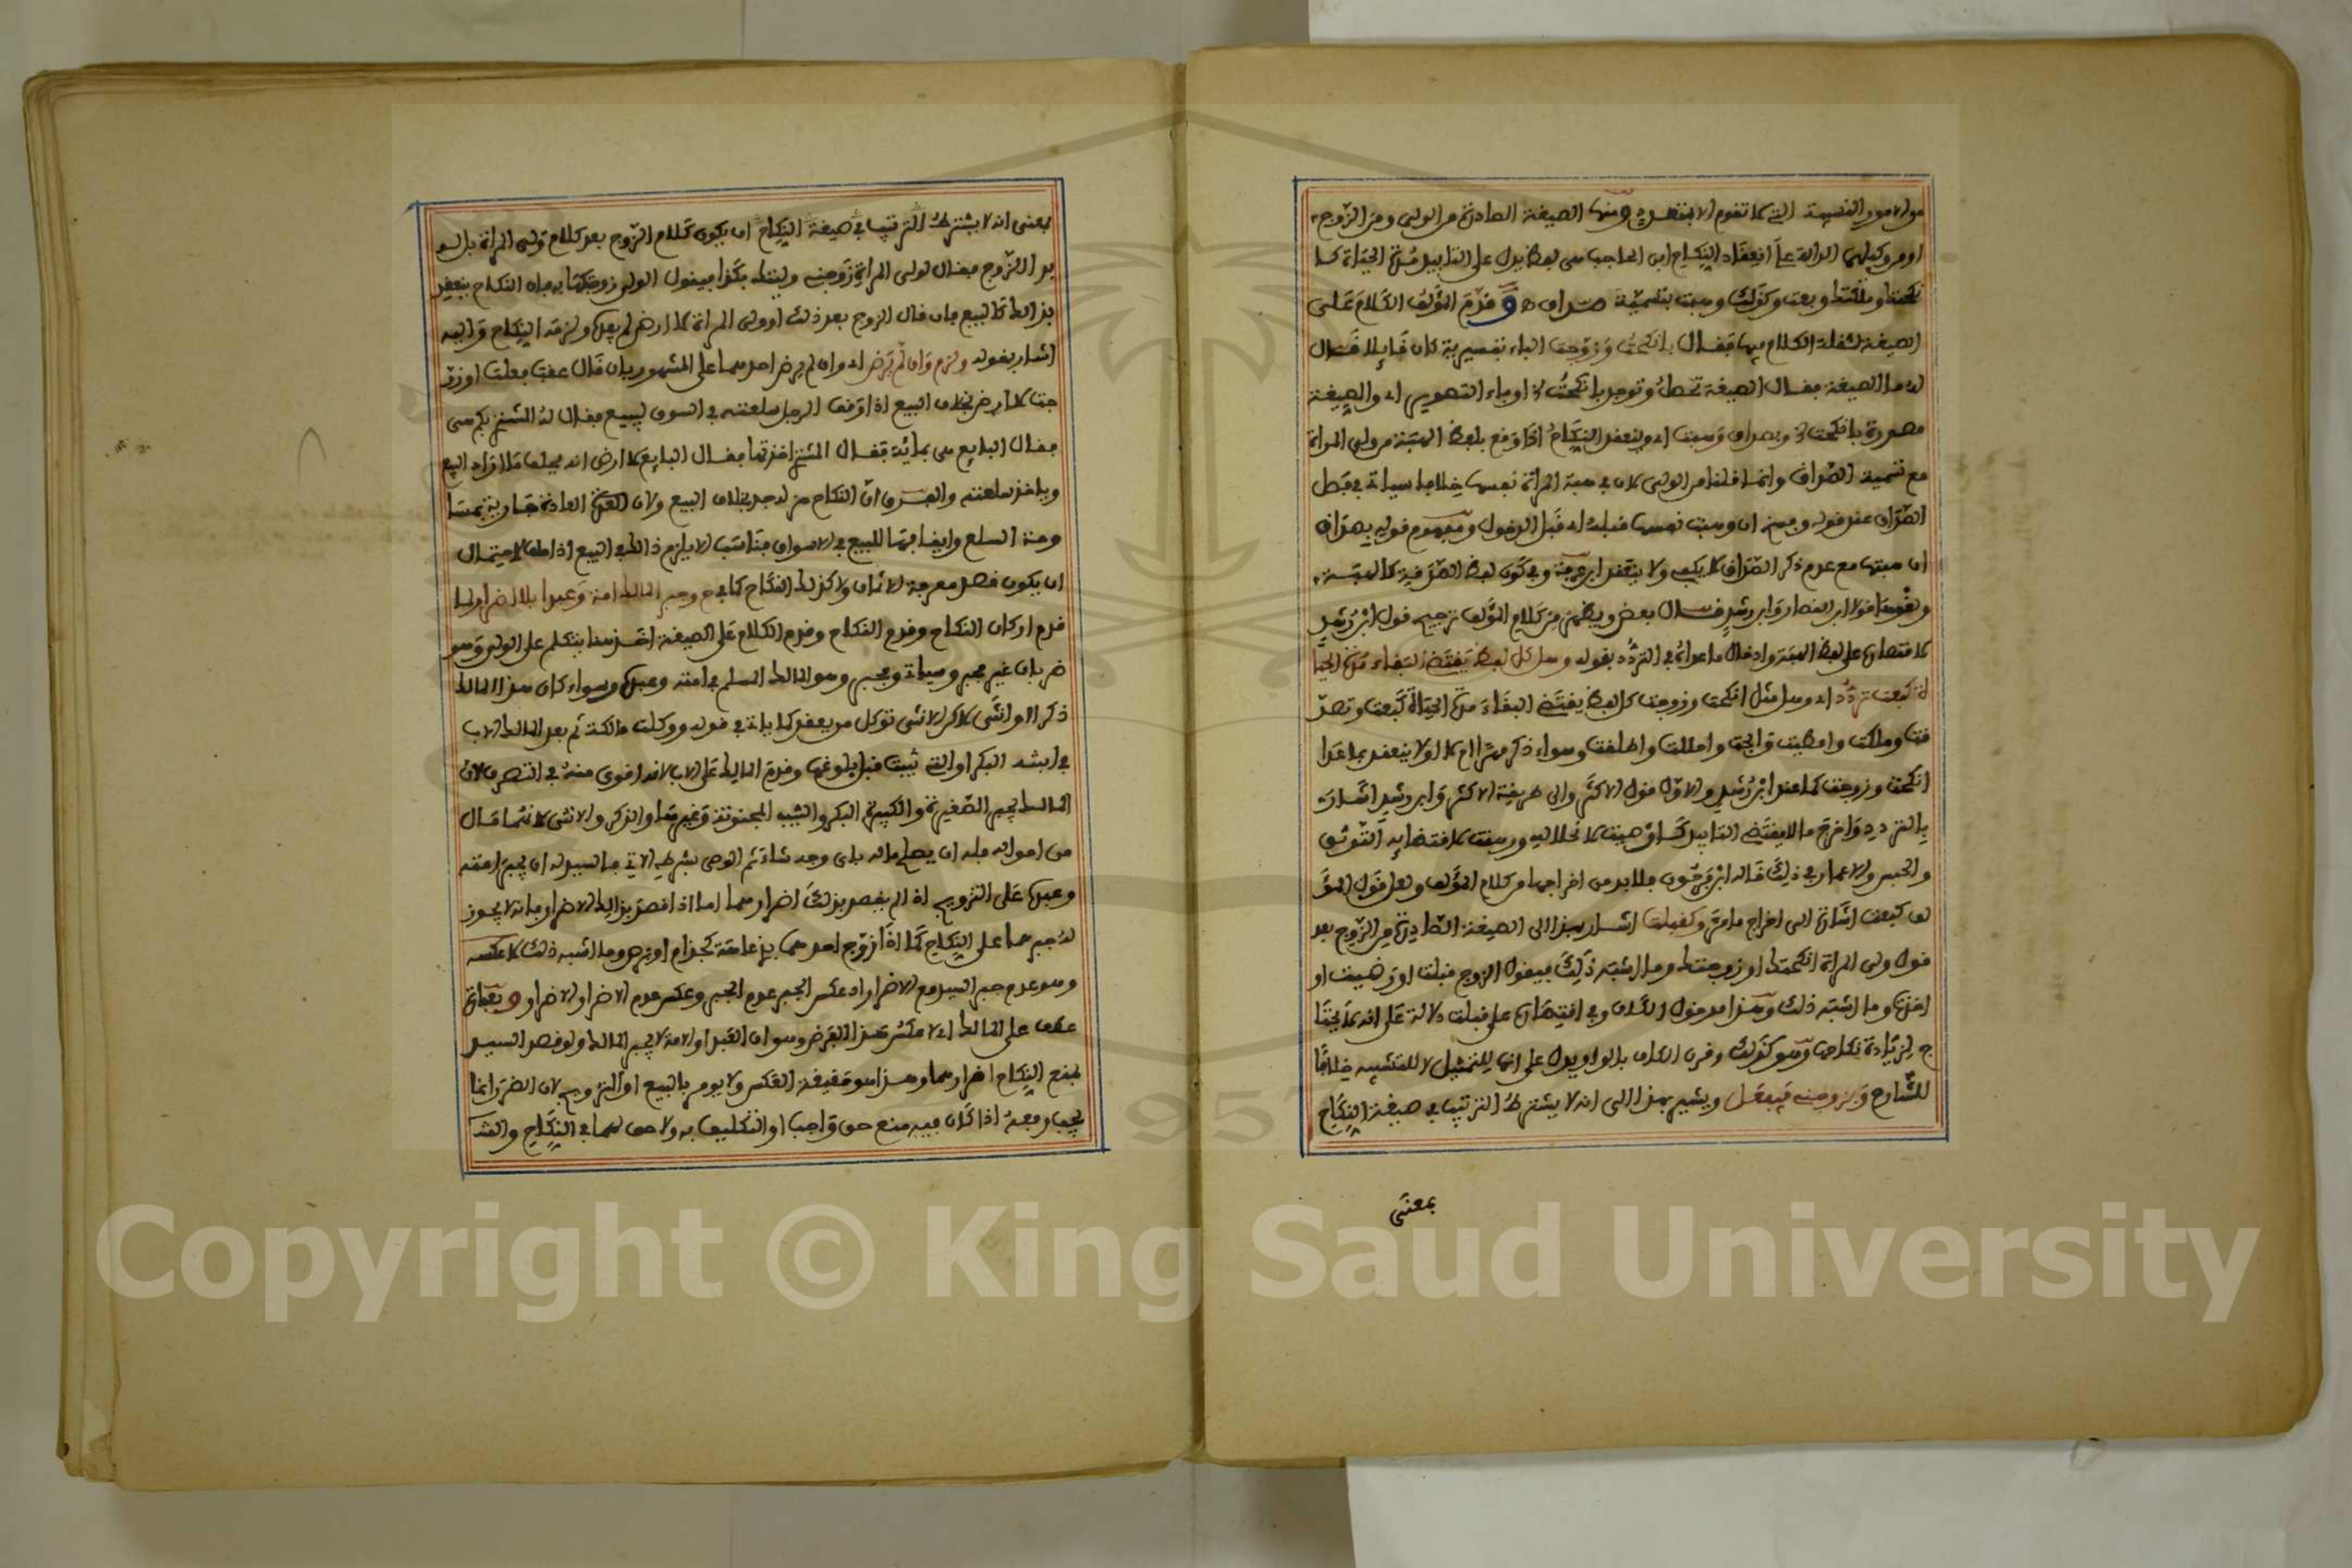 من الامور النسبية التي لا تقوم الا بمتعدد ومنها الصيغة الصادرة من الولي ومن الزوج
او من وكيلهما الدالة على انعقاد النكاح ابن الحاجب هي لفظ يدل على التابيد مدة الحياة كا
نكحت وملكت وبعت وكذلك وهبت بتسمية صداق و قدم المؤلف الكلام على
الصيغة لقلة الكلام فيها فقال بانكحت وزوجت الباء تفسيرية كان قايلا قال
له ما الصيغة فقال الصيغة تحصل وتوجد بانكحت او باء التصوير اي والصيغة
مصورة بانكحت وبصداق وهبت اي وينعقد النكاح اذا وقع بلفظ الهبة من ولي المراة
مع تسمية الصداق وانما قلنا من الولي لان في هبة المراة نفسها خلافا سياتي في فصل
الصداق عند قوله وفسخ ان وهبت نفسها قبله اي قبل الدخول ومفهوم قوله بصداق
ان هبتها مع عدم ذكر الصداق لا يكفي ولا ينعقد ابن عرفة وفي كون لفظ الصدقة كالهبة
ولغوها قولا ابن القصار وابن رشد قال بعض ويظهر من كلام المؤلف ترجيح قول ابن رشد
لاقتصاره على لفظ الهبة وادخال ما عداه في التردد بقوله وهل كل لفظ يقتضي البقاء مدة الحيا
ة كبعت تردد اي وهل مثل انكحت وزوجت كل لفظ يقتضي البقاء مدة الحياة كبعت وتصد
قت وملكت واعطيت وابحت واحللت واطلقت وسواء ذكر مهرا ام لا او لا ينعقد بما عدا
انكحت وزوجت كما عند ابن رشد والاول قول الاكثر والى طريقة الاكثر وابن رشد اشار
بالتردد واخرج ما لا يقتضي التابيد
والحبس والاعمار في ذلك قاله ابن فرحون فلا بد من اخراجها من كلام المؤلف ولعل قول المؤ
لف كبعت اشارة الى اخراج ما مر وكقبلت اشار بهذا الى الصيغة الصادرة من الزوج بعد
قول ولي المراة انكحتك او زوجتك وما اشبه ذلك فيقول الزوج قبلت او رضيت او
اخذت وما اشبه ذلك وهذا مدخول الكاف وفي اقتصاره على قبلت دلالة على انه لا يحتا
ج لزيادة نكاحها وهو كذلك وقرن الكاف بالواو يدل على انها للتمثيل لا للتشبيه خلافا
للشارح وبزوجني فيفعل ويشير بهذا الى انه لا يشترط الترتيب في صيغة النكاح
بمعنى
بمعنى انه لا يشترط الترتيب في صيغة النكاح ان يكون كلام الزوج بعد كلام ولي المراة بل لو
بدا الزوج فقال لولي المراة زوجني وليتك بكذا فيقول الولي زوجتكها به فان النكاح ينعقد
بذلك كالبيع فان قال الزوج بعد ذلك او ولي المراة لا ارضى لم يفده ولزمه النكاح واليه
اشار بقوله ولزم وان لم يرض اي وان لم يرض احدهما على المشهور بان قال عقب فعلت او زو
جت لا ارضى بخلاف البيع اذا اوقف الرجل سلعته في السوق لبيع فقال له المشتري بكم هي
فقال البايع هي بماية فقال المشتري اخذتها فقال البايع لا ارضى انه يحلف ما اراد البيع
وياخذ سلعته والفرق ان النكاح هزله جد بخلاف البيع ولان العادة جارية بمسا
ومة السلع وايقافها للبيع في الاسواق فناسب الا يلزم ذلك في البيع اذا حلف لاحتمال
ان يكون قصد معرفة الاثمان ولا كذلك النكاح وجبر المالك امة وعبدا بلا اضرار لما
قدم اركان النكاح وقدم الكلام على الصيغة اخذ هنا يتكلم على الولي وهو
ضربان غير مجبر وسياتي ومجبر وهو المالك المسلم في امته وعبده وسواء كان هذا المالك
ذكرا او انثى لاكن الانثى توكل من يعقد كما ياتي في قوله ووكلت مالكة ثم بعد المالك الاب
في ابنته البكر او التي ثيبت قبل بلوغها وقدم المالك على الاب لانه اقوى منه في التصرف لان
المالك يجبر الصغيرة والكبيرة البكر والثيب المجنونة وغيرها والذكر والانثى لانهما مال
من امواله فله ان يصلح ماله باي وجه شاء ثم الوصي بشرطه الاتي فالسيد له ان يجبر امته
وعبده على التزويج اذا لم يقصد بذلك اضرارهما اما اذا قصد بذلك الاضرار فانه لا يجوز
له جبرهما على النكاح كما اذا زوج احدهما بذي عاهة كجذام او برص وما اشبه ذلك لا عكسه
وهو عدم جبر السيد مع الاضرار اي عكس الجبر عدم الجبر وعكس عدم الاضرار الاضرار و
عطف على المالك اي لا عكس هذا الفرض وهو ان العبد او الامة لا يجبر المالك ولو قصد السيد
بمنع النكاح اضرارهما وهذا هو حقيقة العكس ولا يومر بالبيع او التزويج لان الضرر انما
يجب رفعه اذا كان فيه منع حق واجب او التكليف به ولا حق لهما في النكاح